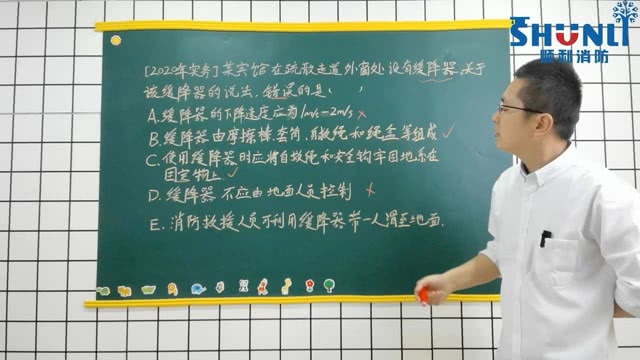 SHUNLI
顺利消防
[2020年实务]某宾馆在疏散走道外窗处设有缓降器,关于
该缓降器的说法,错误的是( )
A.缓降器的下降速度应为1m/s-2m/s ×
B.缓降器由摩擦棒、套筒、自救绳和绳盒等组成 ✓
C.使用缓降器时应将自救绳和安全钩牢固地系在
固定物上 ✓
D.缓降器不应由地面人员控制 ×
E.消防救援人员可利用缓降器带一人滑至地面.